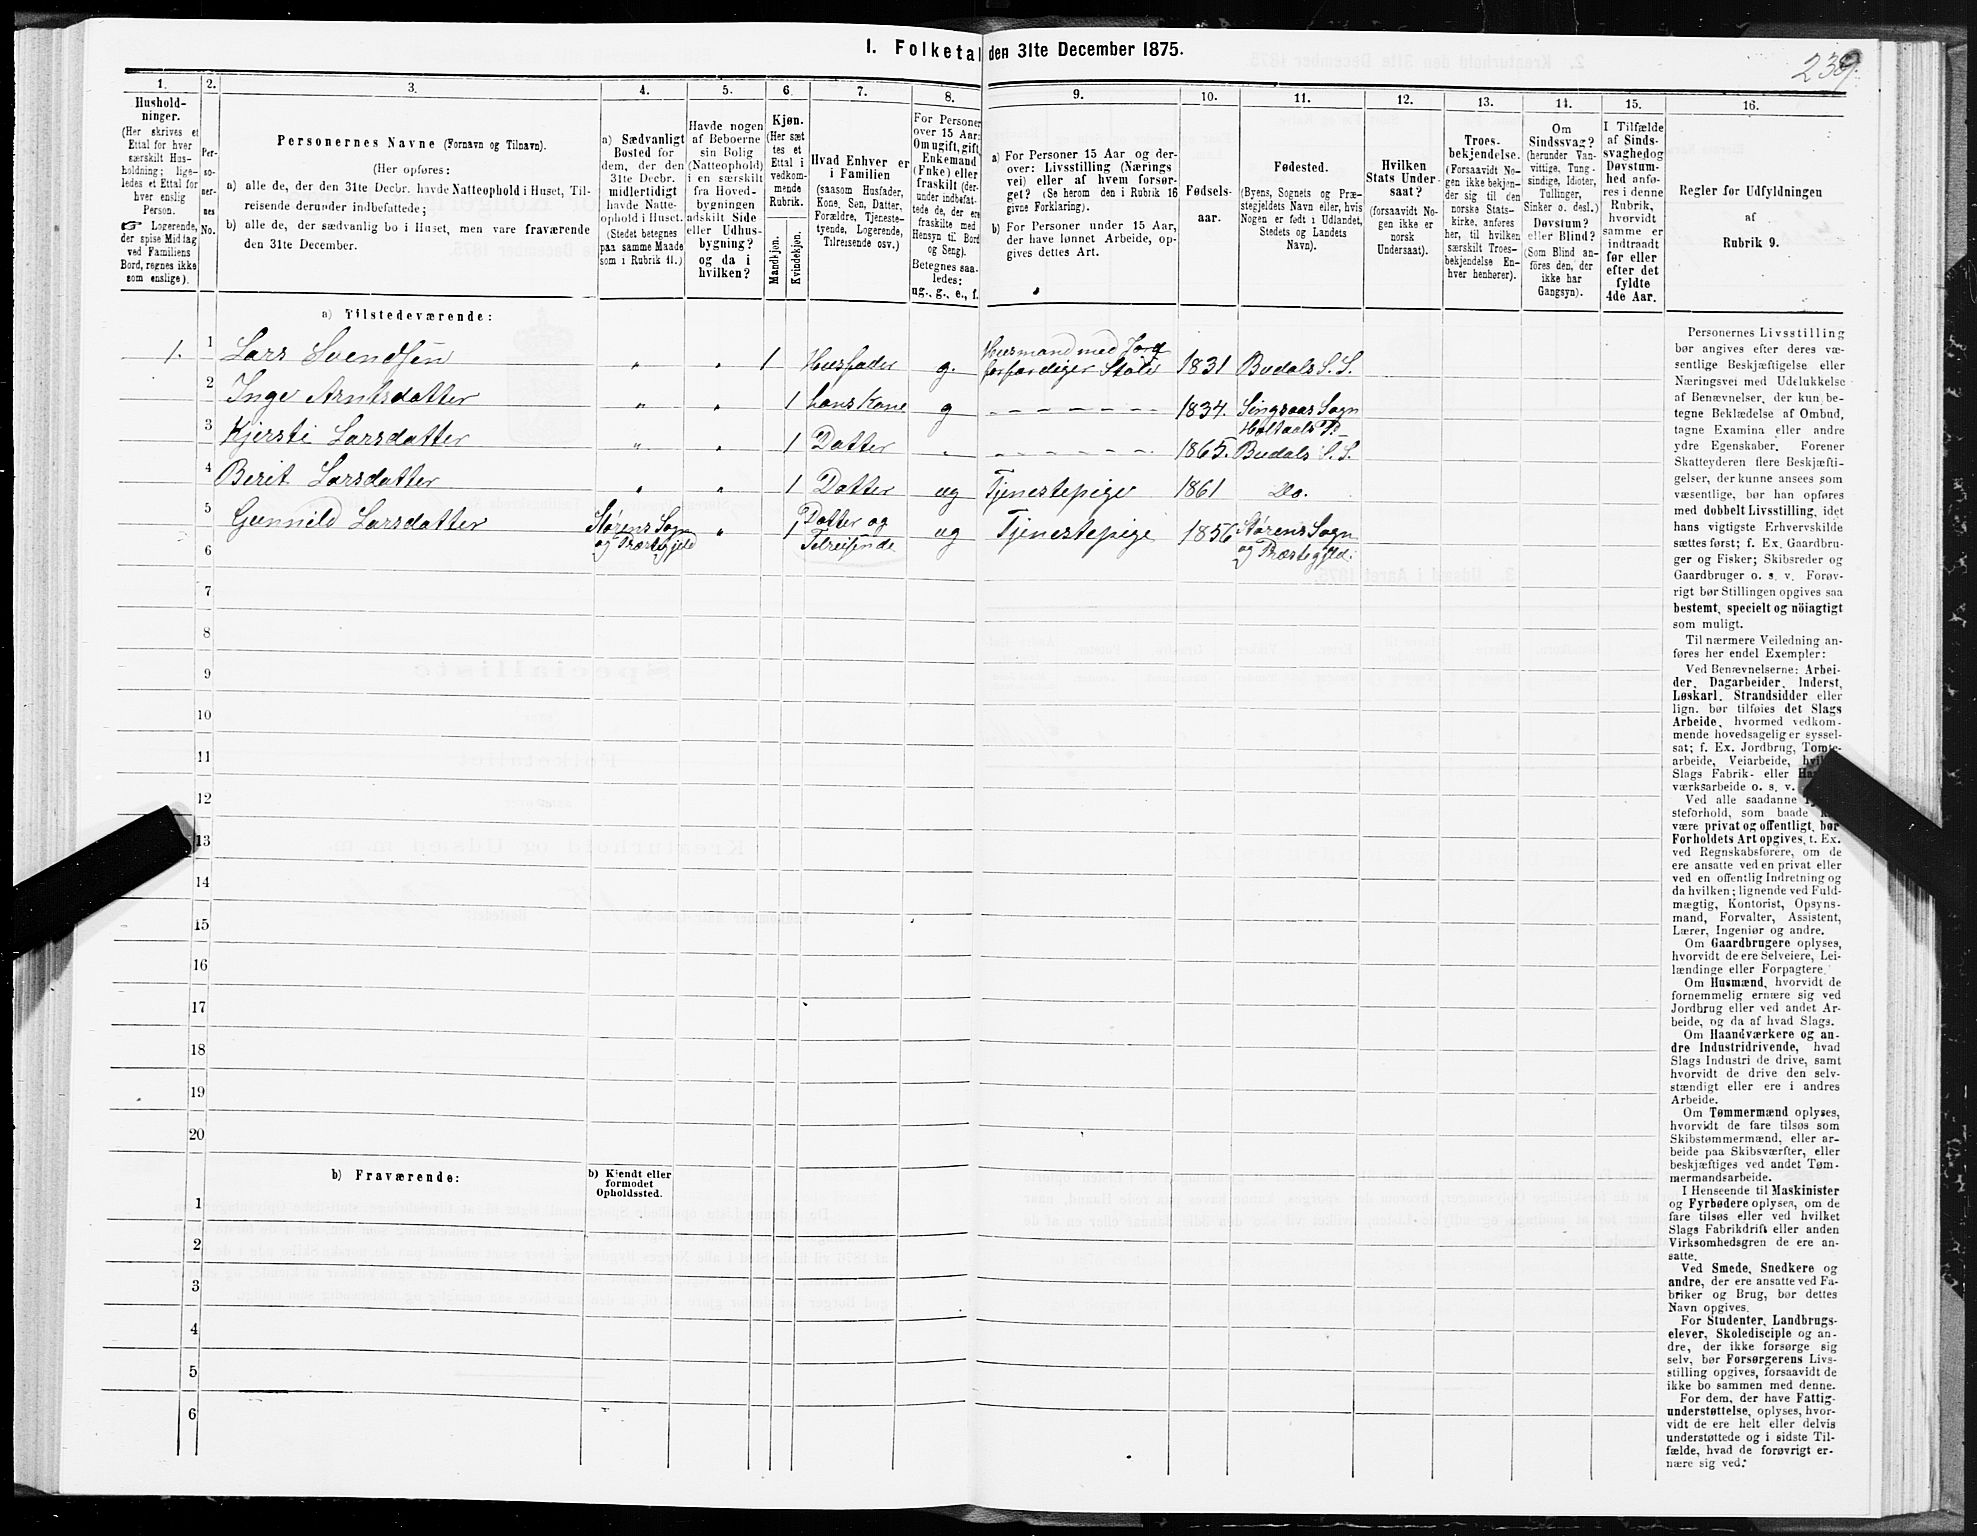 1. Folketal den 31te December 1875.
239.
1.
Hushold-
ninger.
(Her skrives et
Ettal for hver
særskilt Hus-
holdning; lige-
ledes et Ettal for
hver enslig
Person.
☞ Logerende,
der spise Middag
ved Familiens
Bord, regnes ikke
som enslige).
2.
Per-
so-
ner-
nes
No.
3.
Personernes Navne (Fornavn og Tilnavn).
(Her opføres:
a) alle de, der den 31te Decbr. havde Natteophold i Huset, Til-
reisende derunder indbefattede;
b) alle de, der sædvanlig bo i Huset, men vare fraværende
den 31te December.
4.
a) Sædvanligt
Bosted for
dem, der den
31te Decbr.
midlertidigt
havde Natte-
ophold i Huset.
(Stedet betegnes
paa samme Maade
som i Rubrik 11.)
5.
Havde nogen
af Beboerne
sin Bolig
(Natteophold)
i en særskilt
fra Hoved-
bygningen
adskilt Side
eller Udhus-
bygning?
og da i
hvilken?
6.
Kjøn.
(Her sæt
tes et
Ettal i
vedkom-
mende
Rubrik.
Mandkjøn.
Kvindekjøn.
7.
Hvad Enhver er
i Familien
(saasom Husfader,
Kone, Søn, Datter,
Forældre, Tjeneste-
tyende, Logerende,
Tilreisende osv.)
8.
For Personer
over 15 Aar:
Om ugift, gift,
Enkemand
(Enke) eller
fraskilt (der-
under indbefat-
tede de, der ere
fraskilte med
Hensyn til Bord
og Seng).
Betegnes saa-
ledes:
ug., g., e., f.
9.
a) For Personer 15 Aar og der-
over: Livsstilling (Nærings
vei) eller af hvem forsør-
get? (Se herom den i Rubrik 16
givne Forklaring).
b) For Personer under 15 Aar,
der have lønnet Arbeide, op-
gives dettes Art.
10.
Fødsels-
aar.
11.
Fødested.
(Byens, Sognets og Præ-
stegjeldets Navn eller, hvis
Nogen er født i Udlandet,
Stedets og Landets
Navn).
12.
Hvilken
Stats Under-
saat?
(forsaavidt No-
gen ikke er
norsk
Undersaat).
13.
Troes-
bekjendelse.
(Forsaavidt No-
gen ikke bekjen-
der sig til den
norske Stats-
kirke, anføres
her, til hvilken
særskilt Troes-
bekjendelse En-
hver henhører).
14.
Om
Sindssvag?
(herunder Van-
vittige, Tung-
sindige, Idioter,
Tullinger,
Sinker o. desl.)
Døvstum?
eller Blind?
(Som Blind an-
føres den, der
ikke har
Gangsyn).
15.
I Tilfælde
af Sinds-
svaghed og
Døvstum-
hed anfø-
res i denne
Rubrik,
hvorvidt
samme er
indtraadt
før eller
efter det
fyldte
4de Aar.
16.
Regler for Udfyldningen
af
Rubrik 9.
a) Tilstedeværende:
1. 1 Lars Svendsen " " 1 Husfader g. Husmand med Jord forfærdiger Stole 1831 Budals S. S.
2 Inge Arntsdatter " " 1 hans Kone g – – – – – – 1834. Singsaas Sogn
Holtaals P.
3 Kjersti Larsdatter " " 1 Datter " – – – – – – 1865. Budals S. S.
4 Berit Larsdatter " " 1 Datter ug Tjenestepige 1861 Do.
5 Gunnild Larsdatter Størens Sogn " 1 Datter og ug Tjenestepige 1856 Størens Sogn
og Præstegjeld Tilreisende og Præstegjeld.
6
7
8
9
10
11
12
13
14
15
16
17
18
19
20
b) Fraværende:
b) Kjendt eller
formodet
Opholdssted.
1
2
3
4
5
6
Personernes Livsstilling
bør angives efter deres væ-
sentlige Beskjæftigelse eller
Næringsvei med Udelukkelse
af Benævnelser, der kun be-
tegne Beklædelse af Ombud,
tagne Examina eller andre
ydre Egenskaber. Forener
Skatteyderen flere Beskjæfti-
gelser, der kunne ansees som
væsentlige, bør han opføres
med dobbelt Livsstilling, idet
hans vigtigste Erhvervskilde
sættes først; f. Ex. Gaardbru-
ger og Fisker; Skibsreder og
Gaardbruger o. s. v. Forøv-
rigt bør Stillingen opgives saa
bestemt, specielt og nöiagtigt
som muligt.
Til nærmere Veiledning an-
føres her endel Exempler:
Ved Benævnelserne: Arbei-
der, Dagarbeider, Inderst,
Løskarl, Strandsidder eller
lign. bør tilføies det Slags
Arbeide, hvormed vedkom-
mende hovedsagelig er syssel-
sat; f. Ex. Jordbrug, Tomte-
arbeide, Veiarbeide,
Slags Fabrik- eller
værksarbeide o. s. v.
Ved alle saadanne
steforhold, som baade
være privat og offentligt, bør
Forholdets Art opgives, t. Ex.
ved Regnskabsførere, om de
ere ansatte ved en privat eller
ved en offentlig Indretning og
da hvilken; lignende ved Fuld-
mægtig, Kontorist, Opsyns-
mand, Forvalter, Assistent,
Lærer, Ingeniør og andre.
Om Gaardbrugere oplyses,
hvorvidt de ere Selveiere, Lei-
lændinge eller Forpagtere.
Om Husmænd, hvorvidt de
fornemmelig ernære sig ved
Jordbrug eller ved andet Ar-
beide, og da af hvad Slags.
Om Haandværkere og an-
dre Industridrivende, hvad
Slags Industri de drive, samt
hvorvidt de drive den selv-
stændigt eller ere i andres
Arbeide.
Om Tømmermænd oplyses,
hvorvidt de fare tilsøs som
Skibstømmermænd, eller ar-
beide paa Skibsværfter, eller
beskjæftiges ved andet Tøm-
mermandsarbeide.
I Henseende til Maskinister
og Fyrbødere oplyses, om de
fare tilsøs eller ved hvilket
Slags Fabrikdrift eller anden
Virksomhedsgren de ere an-
satte.
Ved Smede, Snedkere og
andre, der ere ansatte ved Fa-
briker og Brug, bør dettes
Navn opgives.
For Studenter, Landbrugs-
elever, Skoledisciple og an-
dre, der ikke forsørge sig
selv, bør Forsørgerens Livs-
stilling opgives, forsaavidt de
ikke bo sammen med denne.
For dem, der have Fattig-
understøttelse, oplyses, hvor-
vidt de ere helt eller delvis
understøttede og i sidste Til-
fælde, hvad de forøvrigt er-
nære sig ved.